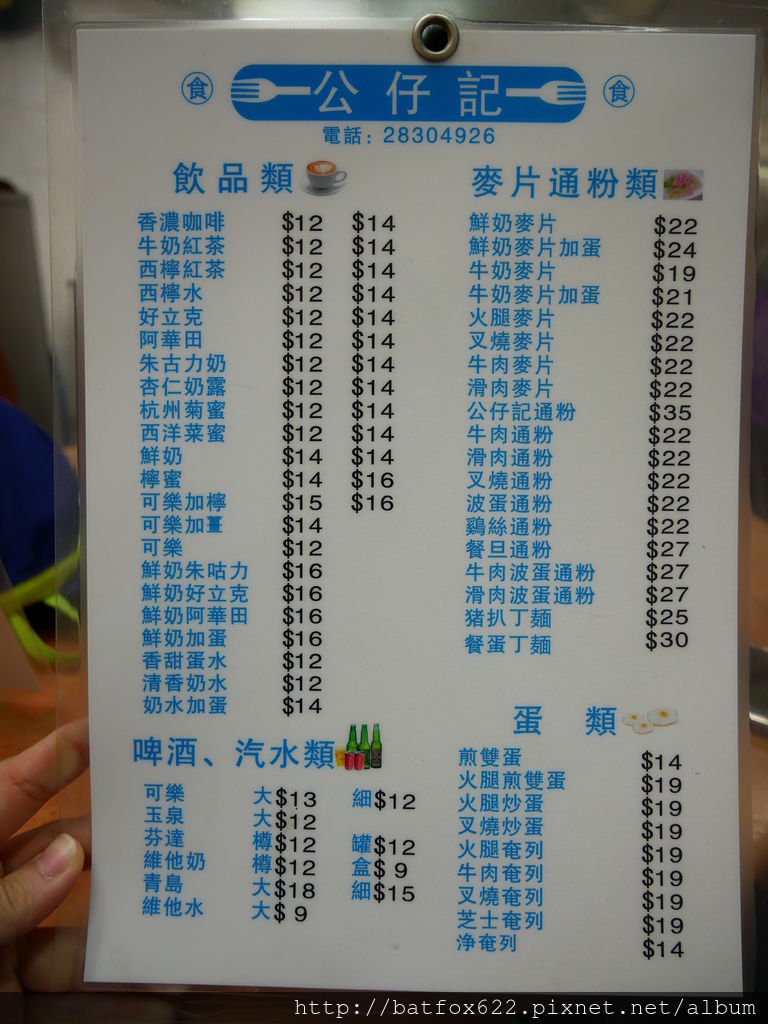 食 公仔記 食
電話: 28304926
飲品類
香濃咖啡 $12 $14
牛奶紅茶 $12 $14
西檸紅茶 $12 $14
西檸水 $12 $14
好立克 $12 $14
阿華田 $12 $14
朱古力奶 $12 $14
杏仁奶露 $12 $14
杭州菊蜜 $12 $14
西洋菜蜜 $12 $14
鮮奶 $14 $14
檸蜜 $14 $16
可樂加檸 $15 $16
可樂加薑 $14
可樂 $12
鮮奶朱咕力 $16
鮮奶好立克 $16
鮮奶阿華田 $16
鮮奶加蛋 $16
香甜蛋水 $12
清香奶水 $12
奶水加蛋 $14
啤酒、汽水類
可樂 大$13 細$12
玉泉 大$12
芬達 樽$12 罐$12
維他奶 樽$12 盒$ 9
青島 大$18 細$15
維他水 大$ 9
麥片通粉類
鮮奶麥片 $22
鮮奶麥片加蛋 $24
牛奶麥片 $19
牛奶麥片加蛋 $21
火腿麥片 $22
叉燒麥片 $22
牛肉麥片 $22
滑肉麥片 $22
公仔記通粉 $35
牛肉通粉 $22
滑肉通粉 $22
叉燒通粉 $22
波蛋通粉 $22
鷄絲通粉 $22
餐旦通粉 $27
牛肉波蛋通粉 $27
滑肉波蛋通粉 $27
猪扒丁麵 $25
餐蛋丁麵 $30
蛋 類
煎雙蛋 $14
火腿煎雙蛋 $19
火腿炒蛋 $19
叉燒炒蛋 $19
火腿奄列 $19
牛肉奄列 $19
叉燒奄列 $19
芝士奄列 $19
净奄列 $14
http://batfox622.pixnet.net/album